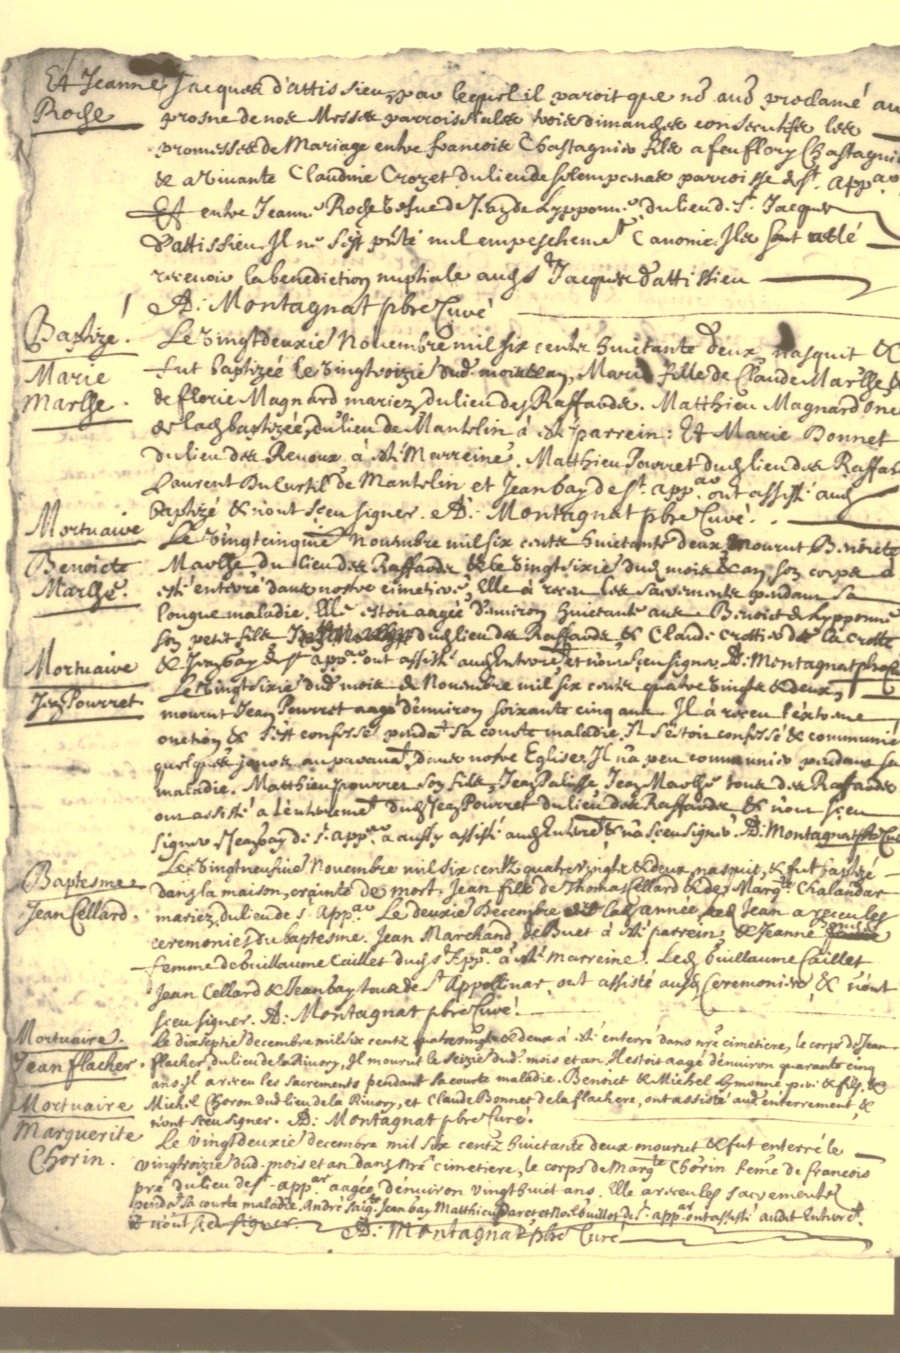 Et Jeanne Jacques d'attissieu, par lequel il paroit que ns avs proclamé au
Roche
prosne de nos Messes parroissiales trois dimanches consecutifs les
promesses de Mariage entre francois Chastagnier fils a feu flory Chastagnier
& a vivante Claudine Crozet du lieu de Solempnat parroisse de St. App.ar
Et entre Jeanne Roche vefve de Jean de Lypponne du lieu d. St. Jacques
d'attissieu. Il ne s'est pnté nul empeschemet Canonic. Ils sont allé
recevoir la benediction nuptiale aud St Jacques d'attissieu
A: Montagnat pbre Curé
Baptizé.
Le vingtdeuxie Novembre mil six cents huictante deux nasquit &
fut baptizée le vingtroizie dud. mois & an, Marie fille de Claude Marlhe &
Marie
Marlhe.
de florie Magnard mariez du lieu des Raffards. Matthieu Magnard Oncle
de lad baptizée, du lieu de Mantelin à été parrein: Et Marie Bonnet
du lieu des Revoux à été Marreine. Matthieu Pourret dud lieu des Raffards
Laurent Du Curtil de Mantelin et Jean bay de St. app.ar ont assisté aud
baptizé & n'ont sceu signer. A: Montagnat pbre Curé.
Mortuaire
Le vingtcinquie Novembre mil six cents huictante deux Mourut Benoicte
Benoicte
Marlhe du lieu des Raffards & le vingtsixie dud mois & an son corps a
Marlhe.
esté enterré dans nostre cimetiere, Elle à receu les sacrements pendant sa
longue maladie. Elle estoit aagée d'environ huictante ans Benoict de Lypponne
son petit fils dud lieu des Raffards & Claude Crottier de la Crotte
& Jean bay de St. app.ar ont assisté aud Enterré et n'ont sceu signer. A: Montagnat pbre C
Mortuaire
Le vingtsixie dud mois de Novembre mil six cents quatre vingts & deux,
Jean Pourret
mourut Jean Pourret aagé d'environ soixante cinq ans Il à receu l'extreme
onction & s'est confessé pendat sa courte maladie. Il s'estoit confessé & communié
quelques jours auparavat, dans notre Eglise. Il n'a peu communier pendant sa
maladie. Matthieu pourret son fils, Jean Palisse, Jean Marlhe tous des Raffards
ont assisté à l'enterremet dud Jean Pourret du lieu des Raffards & n'ont sceu
signer. Jean bay de St. app.ar a aussy assisté aud Enterré & n'a sceu signer. A: Montagnat pbre Cu
Le vingtneufuie Novembre mil six centz quatrevingts & deux, nasquit, & fut baptizé
Baptesme
dans la maison, crainte de mort. Jean fils de Thomas Cellard & de Margte Chalandar
Jean Cellard.
mariez, du lieu de St. App.ar Le deuxie Decembre lad année, led Jean a receu les
ceremonies du baptesme. Jean Marchand de Buet à été parrein, & Jeanne
femme de Guillaume Caillet dud St App.ar à été marreine. Led Guillaume Caillet
Jean Cellard & Jean bay tous de St Appollinar, ont assisté aud Ceremonies, & n'ont
sceu signer. A: Montagnat pbre Curé.
Mortuaire.
Le dixseptie decembre mil six centz quatrevingts & deux à été enterré dans nre cimetiere, le corps de Jean
Jean flacher.
flacher, du lieu de la Rivory, Il mourut le seizie dud. mois et an, Il estoit aagé d'environ quarante cinq
ans, Il a receu les sacrements pendant sa courte maladie. Benoict & Michel Lymonne p. & fils, &
Mortuaire
Michel Choron dud lieu de la Rivory, et Claude Bonnet de la flachere, ont assisté aud enterrement &
n'ont sceu signer. A: Montagnat pbre Curé.
Marguerite
Le vingtdeuxie decembre mil six centz huictante deux mourut & fut enterré le
Chorin.
vingtroizie dud. mois et an dans nre cimetiere, le corps de Margte Chorin feme de francois
pra du lieu de St. app.ar aagée d'environ vingthuict ans. Elle a receu les sacrements
pendat sa courte maladie. André Jean bay Matthieu Daret et Noel de St. app.ar ont assisté audit Enterré
& n'ont sceu signer. A: Montagnat pbre Curé